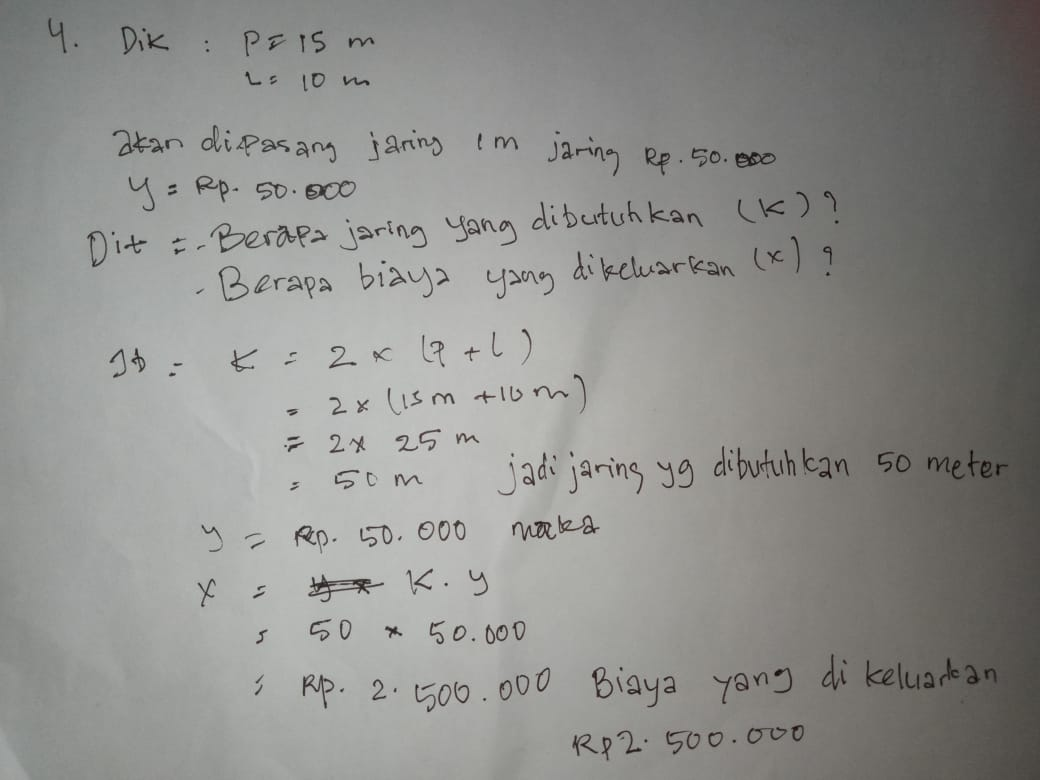 4. Dik : P = 15 m
L = 10 m
akan dipasang jaring 1 m jaring Rp. 50.000
y = Rp. 50.000
Dit = - Berapa jaring yang dibutuhkan (K) ?
- Berapa biaya yang dikeluarkan (x) ?
Jb = K = 2 x (P + l)
= 2 x (15 m + 10 m)
= 2 x 25 m
= 50 m jadi jaring yg dibutuhkan 50 meter
y = Rp. 50.000 maka
x = K . y
= 50 x 50.000
= Rp. 2.500.000 Biaya yang di keluarkan
Rp 2.500.000